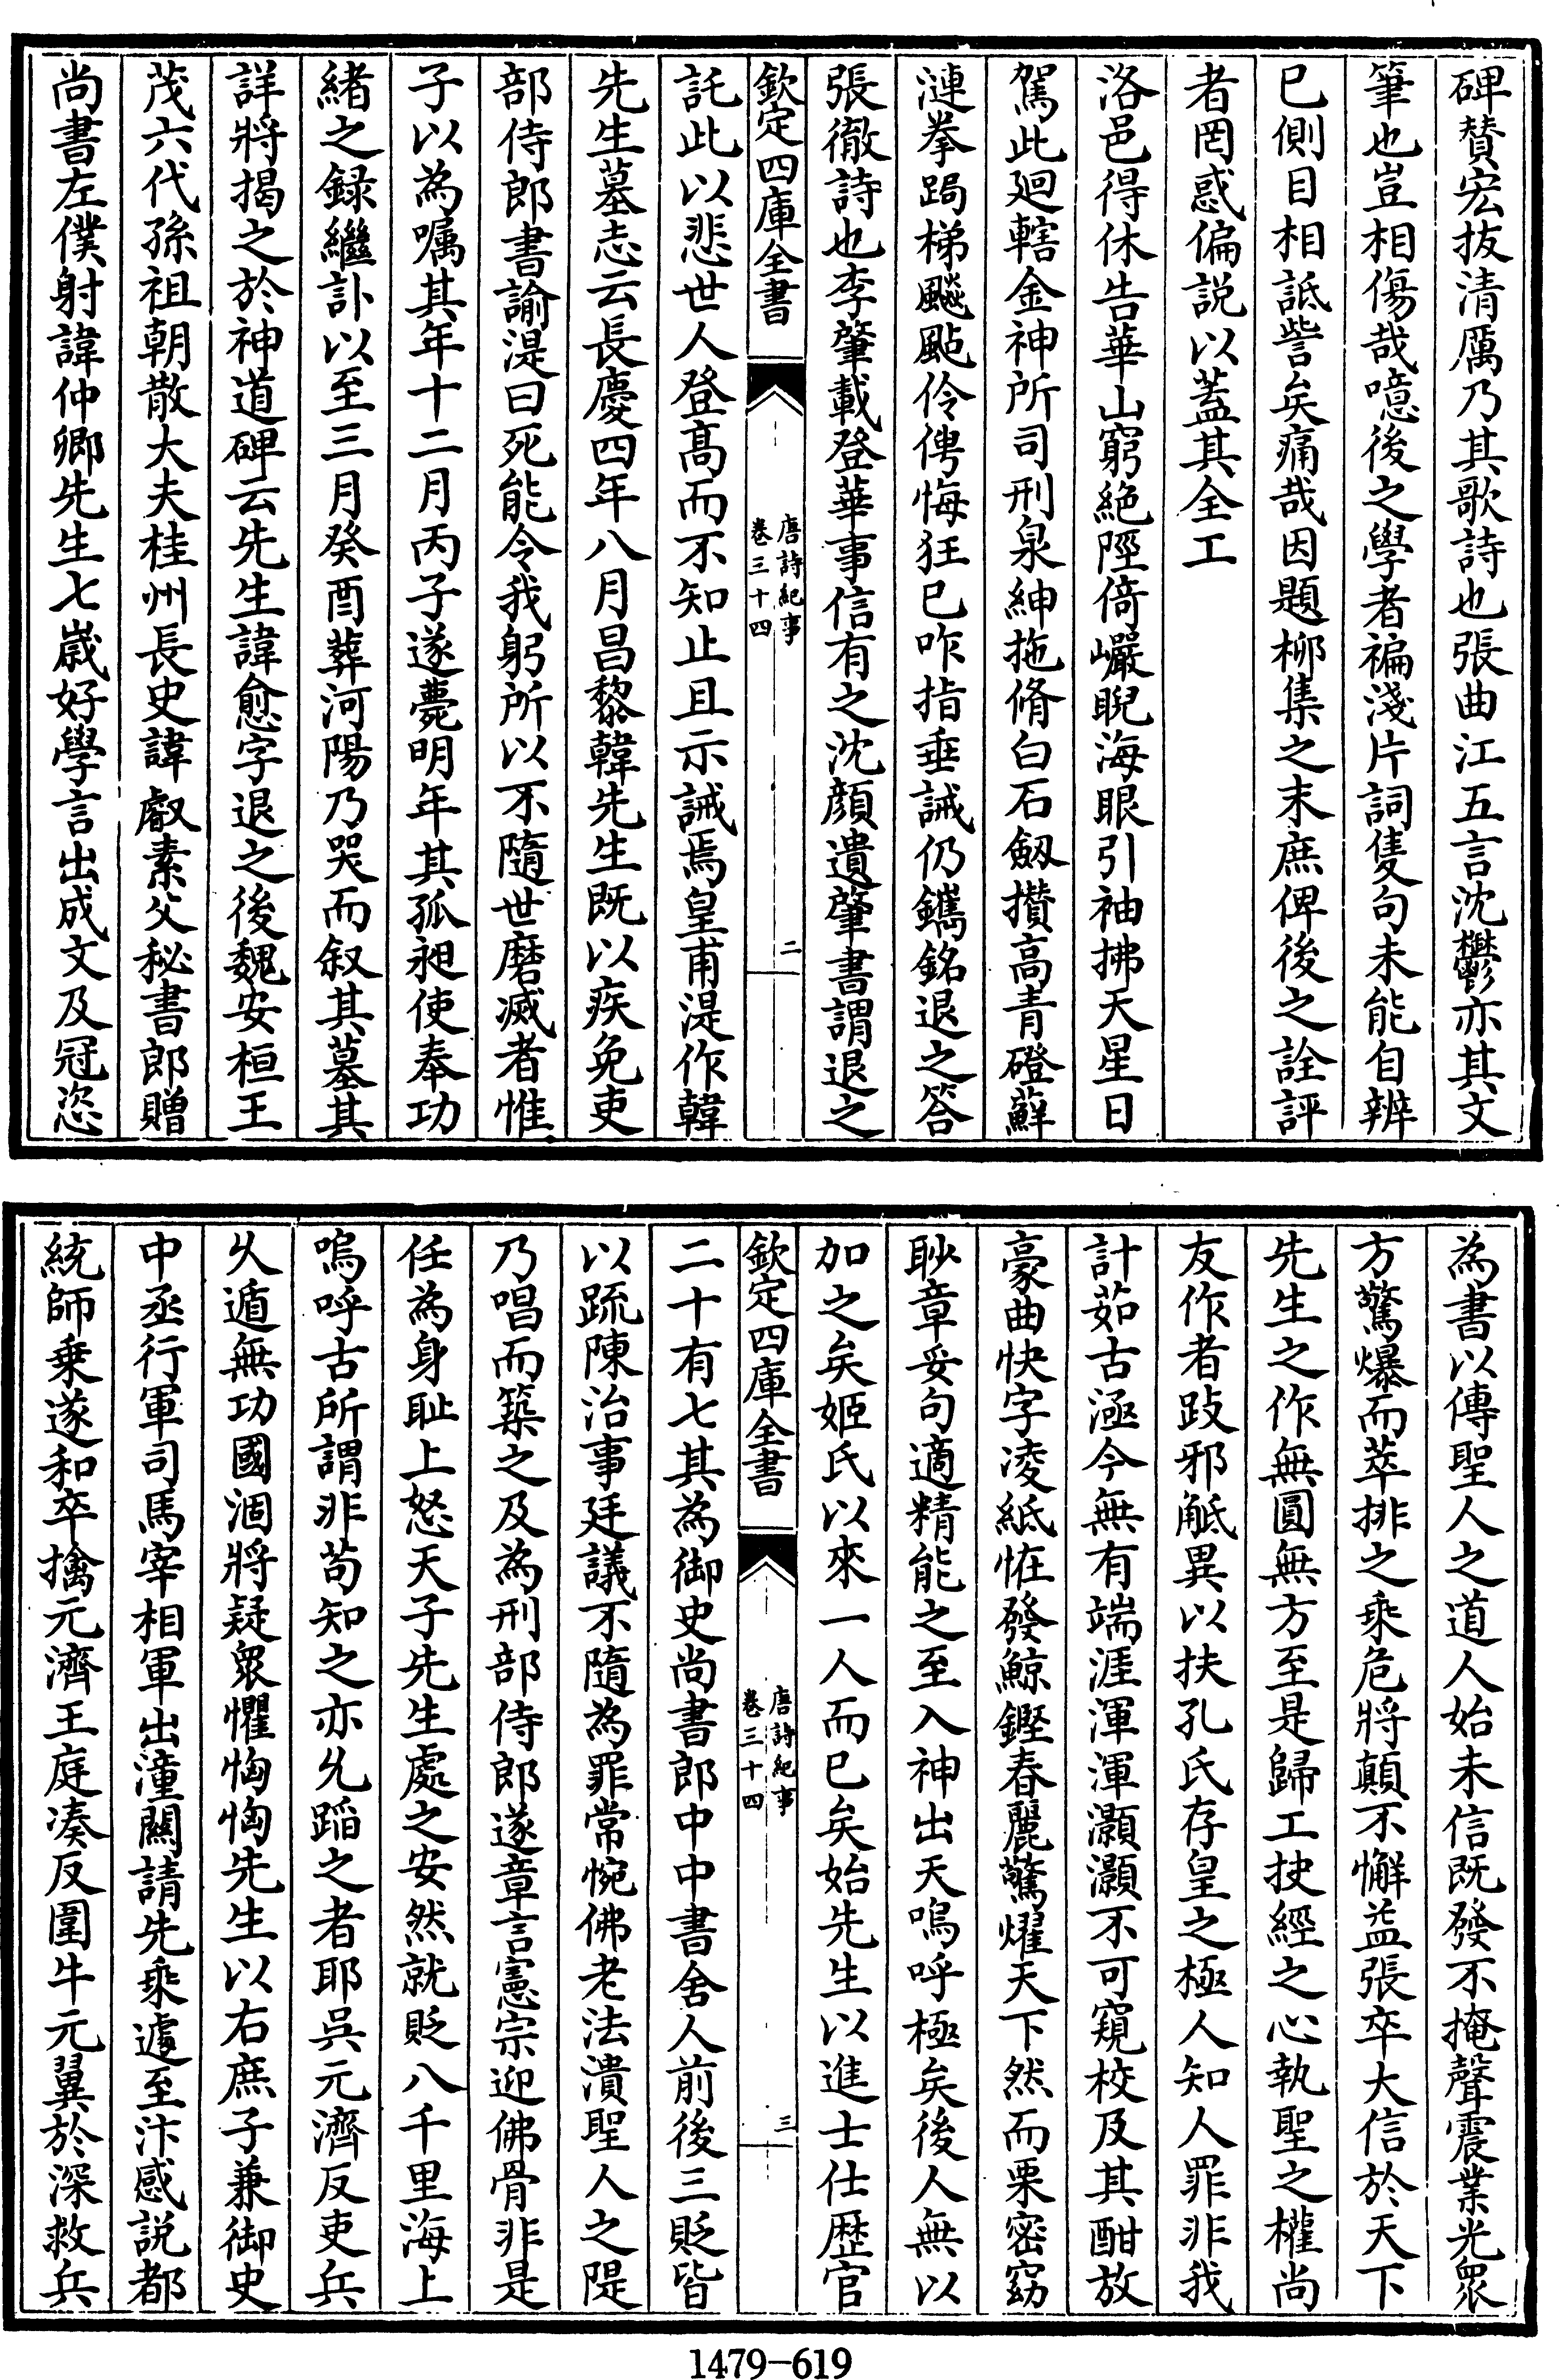 碑賛宏抜清厲乃其歌詩也張曲江五言沈鬱亦其文
筆也豈相傷哉噫後之學者褊淺片詞隻句未能自辨
已側目相詆訾矣痛哉因題栁集之末庶俾後之詮評
者罔惑偏説以蓋其全工
洛邑得休告華山窮絶陘倚巖睨海眼引袖拂天星日
駕此廻轄金神所司刑泉紳拖脩白石劔攢高青磴蘚
漣拳跼梯飇颭伶俜悔狂已咋指垂誡仍鐫銘退之答
張徹詩也李肇載登華事信有之沈顔遺肇書謂退之
欽定四庫全書
唐詩紀事
卷三十四
二
託此以悲世人登髙而不知止且示誡焉皇甫湜作韓
先生墓志云長慶四年八月昌黎韓先生既以疾免吏
部侍郎書諭湜曰死能令我躬所以不隨世磨滅者惟
子以為嘱其年十二月丙子遂薨明年其孤昶使奉功
緒之録繼訃以至三月癸酉葬河陽乃哭而叙其墓其
詳將揭之於神道碑云先生諱愈字退之後魏安桓王
茂六代孫祖朝散大夫桂州長史諱叡素父秘書郎贈
尚書左僕射諱仲卿先生七嵗好學言出成文及冠恣
為書以傳聖人之道人始未信既發不掩聲震業光衆
方驚爆而萃排之乘危將顛不懈益張卒大信於天下
先生之作無圓無方至是歸工抉經之心執聖之權尚
友作者跂邪觝異以扶孔氏存皇之極人知人罪非我
計茹古涵今無有端涯渾渾灝灝不可窺校及其酣放
豪曲快字凌紙怪發鯨鏗春麗驚燿天下然而栗密窈
眇章妥句適精能之至入神出天嗚呼極矣後人無以
加之矣姬氏以來一人而已矣始先生以進士仕歴官
欽定四庫全書
唐詩紀事
卷三十四
三
二十有七其為御史尚書郎中中書舍人前後三貶皆
以疏陳治事廷議不隨為罪常惋佛老法潰聖人之隄
乃唱而築之及為刑部侍郎遂章言憲宗迎佛骨非是
任為身耻上怒天子先生處之安然就貶八千里海上
嗚呼古所謂非茍知之亦允蹈之者耶呉元濟反吏兵
乆遁無功國涸將疑衆懼恟恟先生以右庶子兼御史
中丞行軍司馬宰相軍出潼闗請先乘遽至汴感説都
統師乗遂和卒擒元濟王庭凑反圍牛元翼於深救兵
1479-619